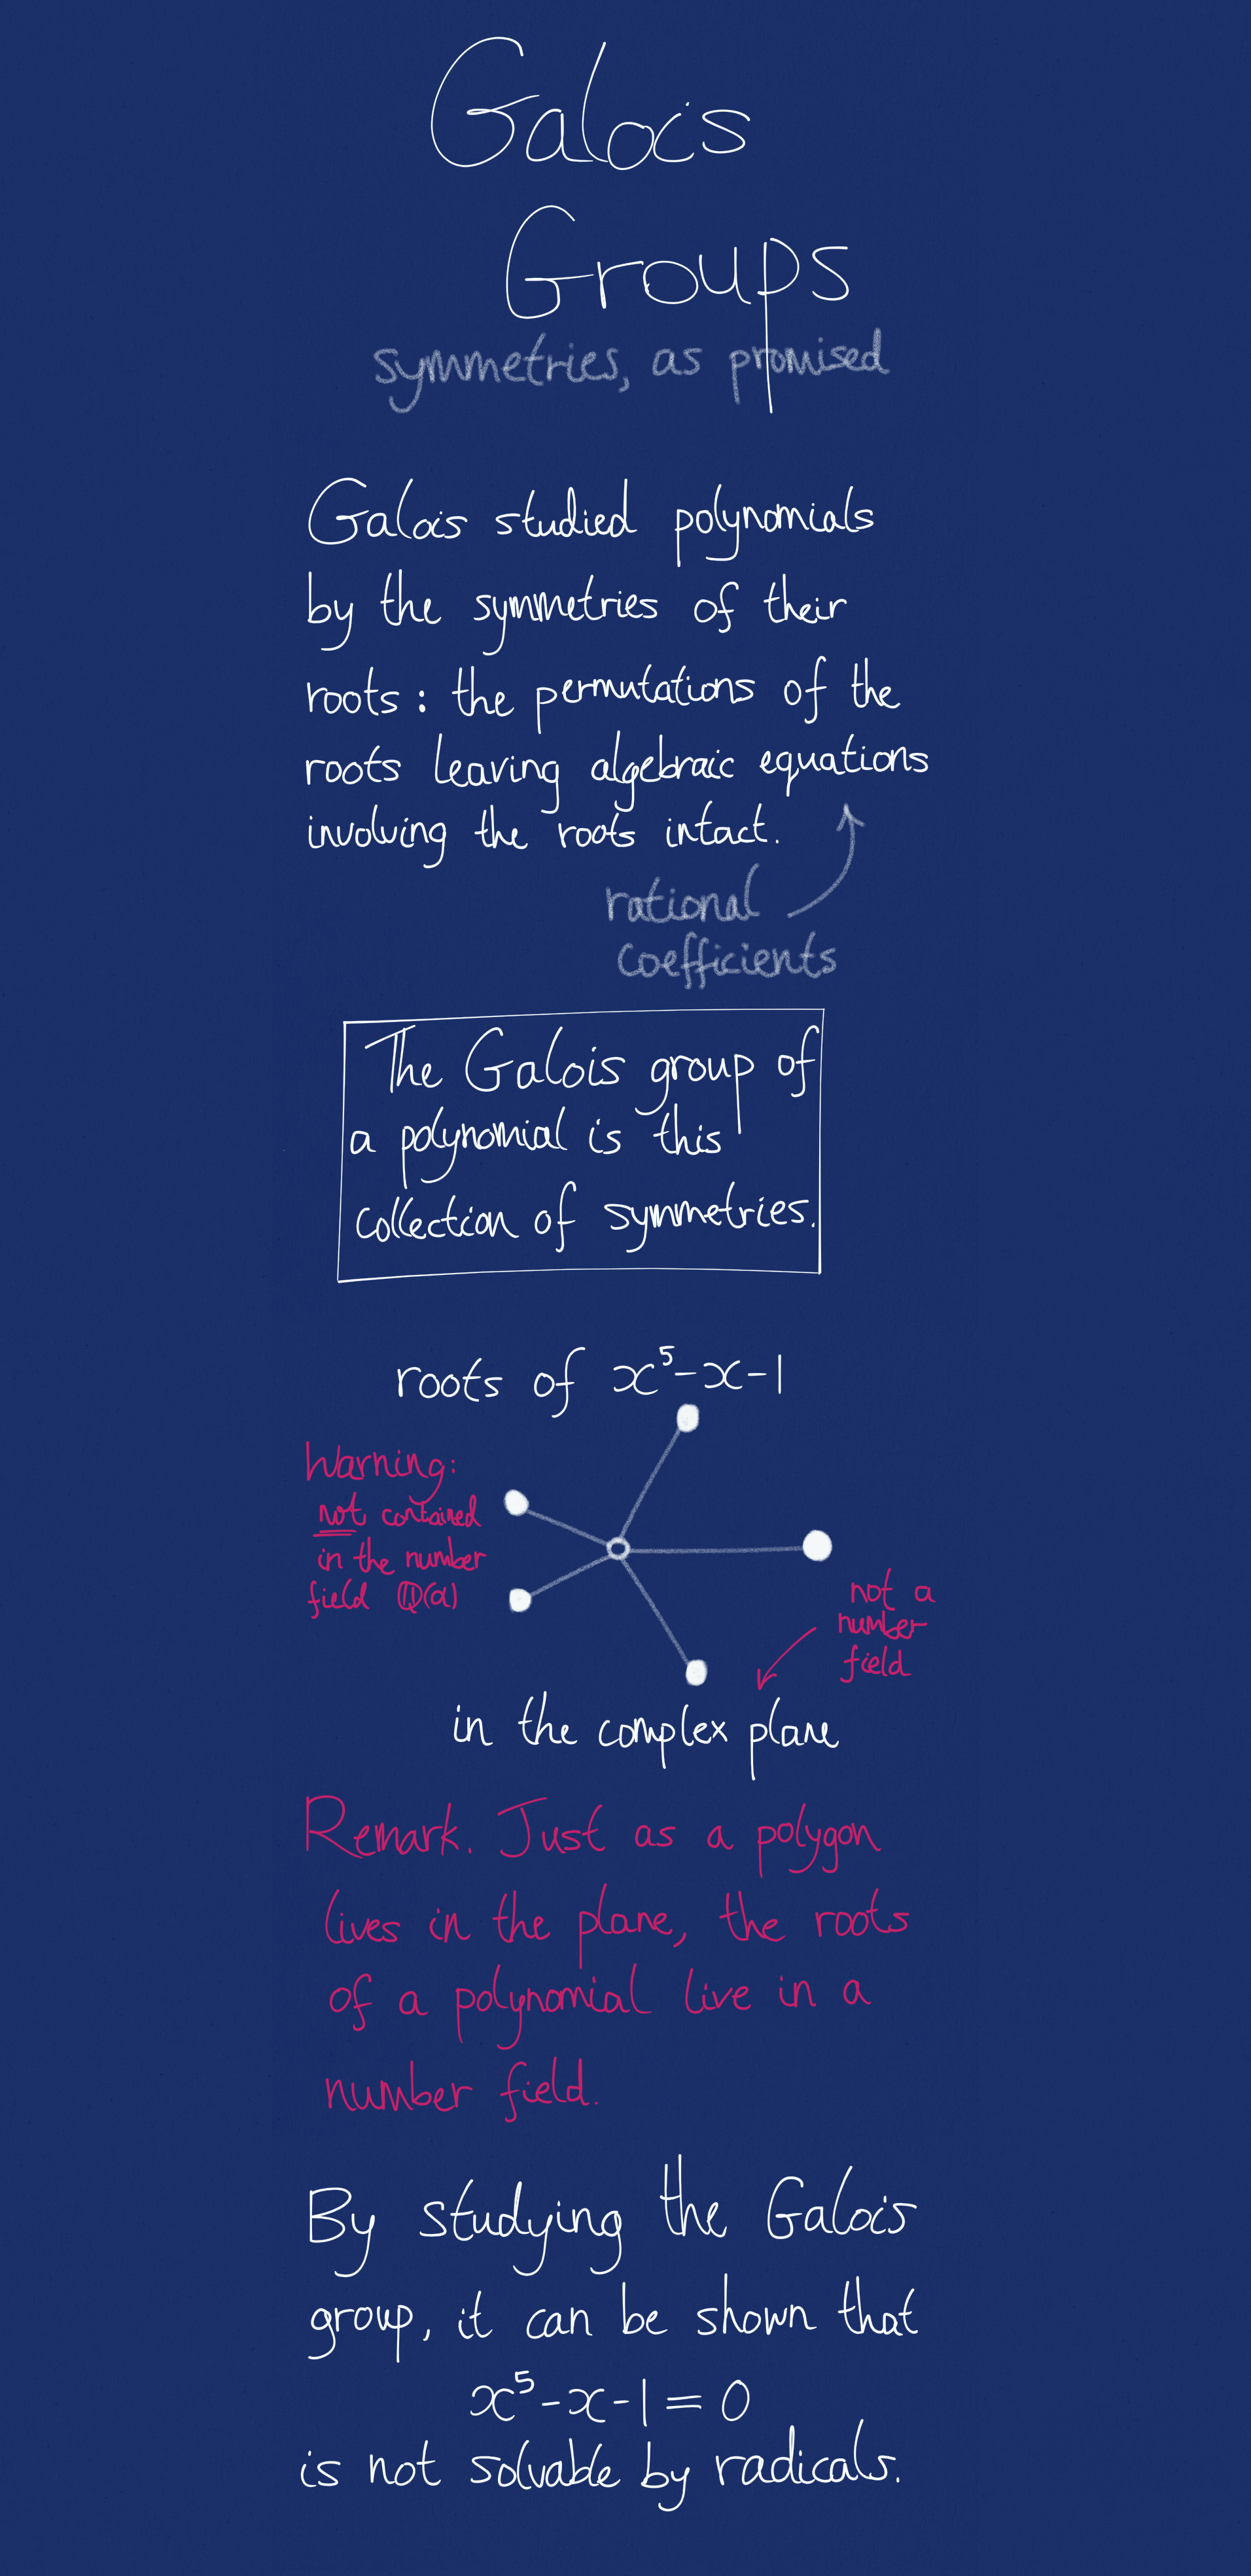 Galois
Groups
symmetries, as promised
Galois studied polynomials
by the symmetries of their
roots: the permutations of the
roots leaving algebraic equations
involving the roots intact.
rational
coefficients
The Galois group of
a polynomial is this
collection of symmetries.
roots of x⁵-x-1
Warning:
not contained
in the number
field ℚ(a)
not a
number
field
in the complex plane
Remark. Just as a polygon
lives in the plane, the roots
of a polynomial live in a
number field.
By studying the Galois
group, it can be shown that
x⁵-x-1=0
is not solvable by radicals.